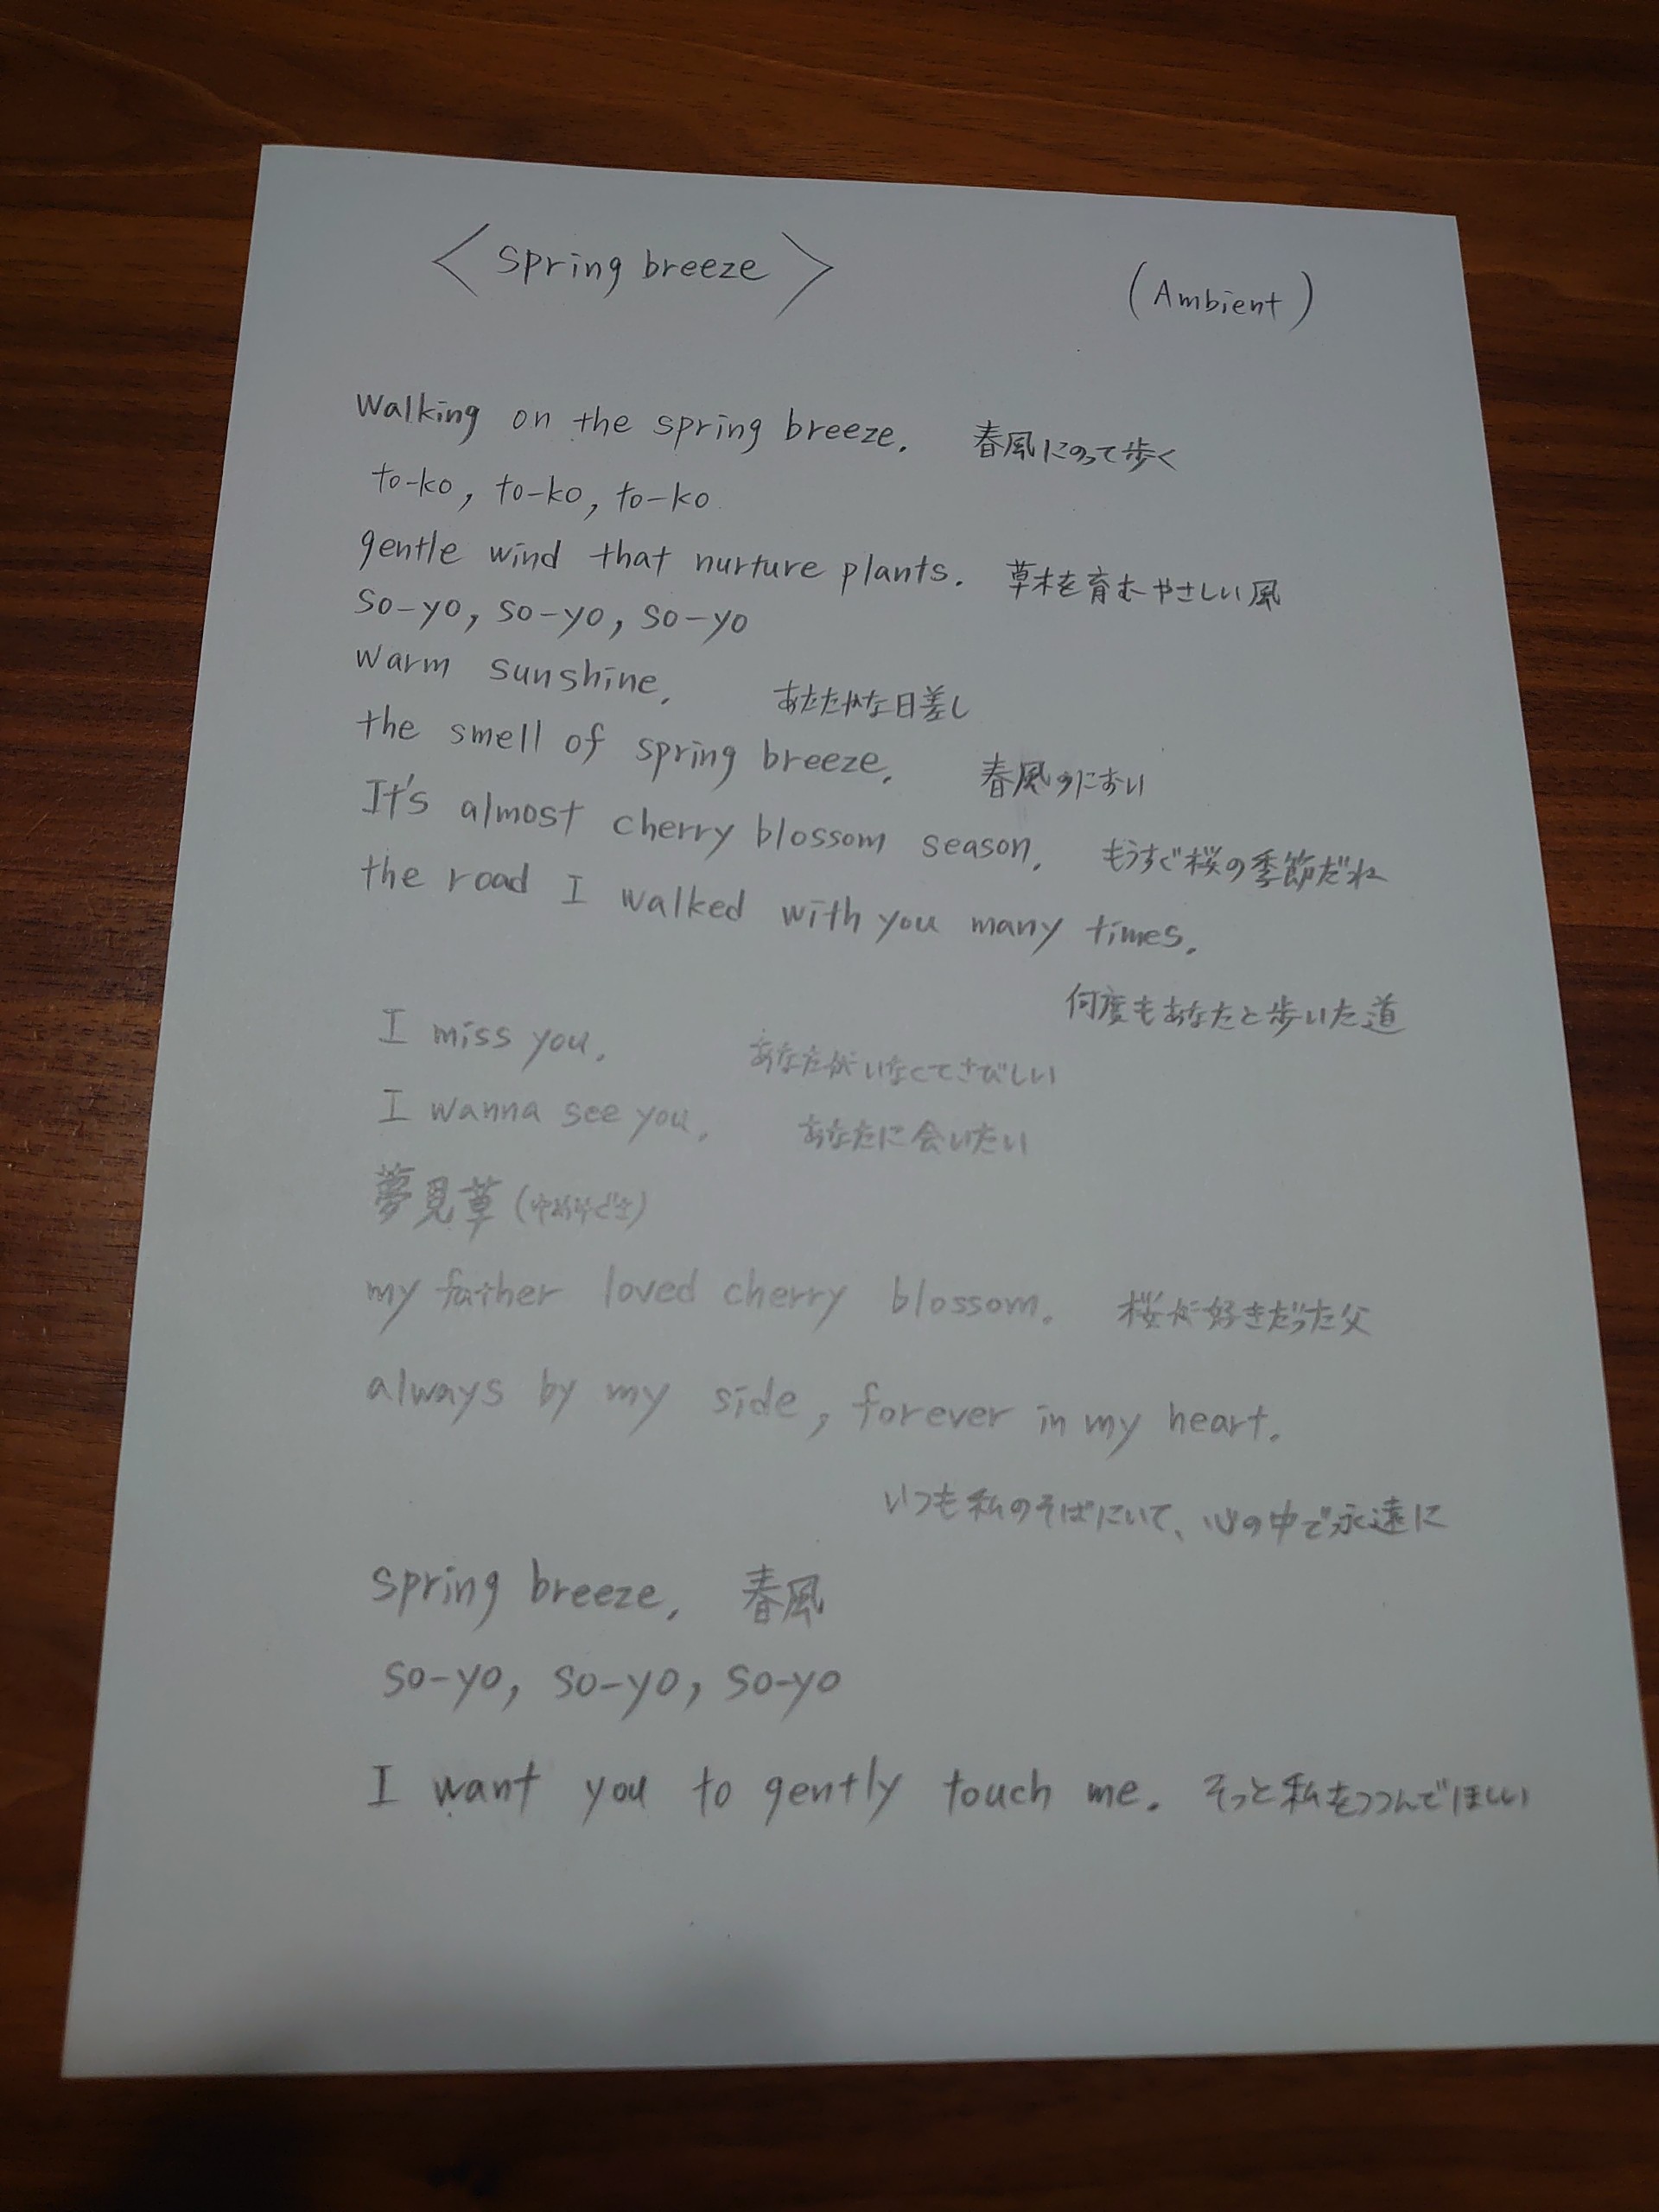 < spring breeze > (Ambient)
Walking on the spring breeze. 春風にのって歩く
to-ko, to-ko, to-ko
gentle wind that nurture plants. 草木を育むやさしい風
so-yo, so-yo, so-yo
warm sunshine. あたたかな日差し
the smell of spring breeze. 春風のにおい
It's almost cherry blossom season. もうすぐ桜の季節だね
the road I walked with you many times.
何度もあなたと歩いた道
I miss you. あなたがいなくてさびしい
I wanna see you. あなたに会いたい
夢見草 (ゆめみぐさ)
my father loved cherry blossom. 桜が好きだった父
always by my side, forever in my heart.
いつも私のそばにいて、心の中で永遠に
spring breeze. 春風
so-yo, so-yo, so-yo
I want you to gently touch me. そっと私をつつんでほしい